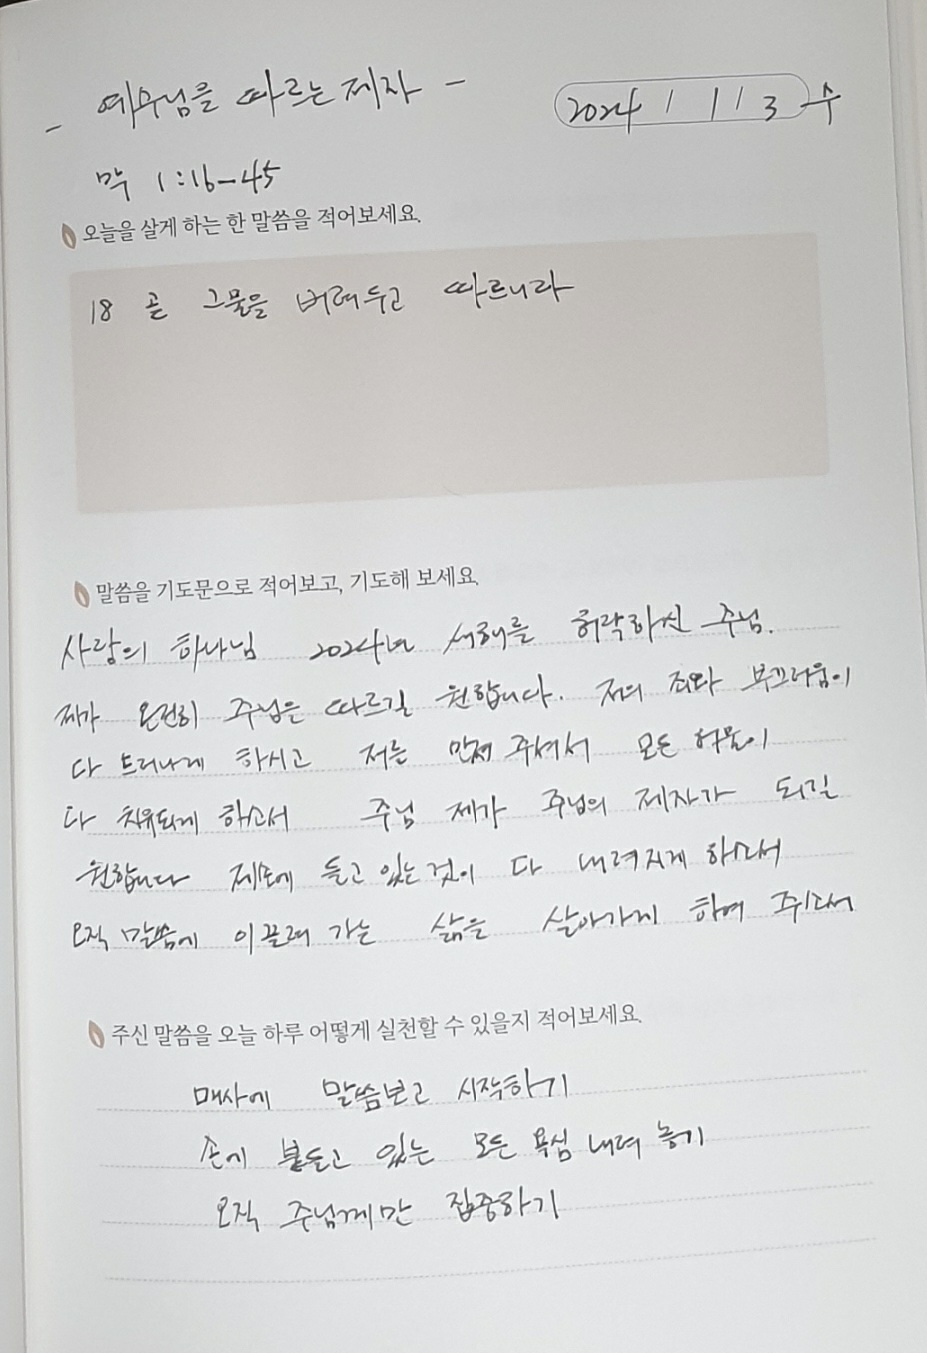 - 예수님을 따르는 제자 -
2024 / 1 / 3 수
막 1:16-45
오늘을 살게 하는 한 말씀을 적어보세요.
18 곧 그물을 버려두고 따르니라
말씀을 기도문으로 적어보고, 기도해 보세요.
사랑의 하나님 2024년 새해를 허락하신 주님.
제가 온전히 주님은 따르길 원합니다. 저의 죄와 부끄러움이
다 드러나게 하시고 저를 만져 주셔서 모든 허물이
다 치유되게 하소서 주님 제가 주님의 제자가 되길
원합니다 제손에 들고 있는 것이 다 내려지게 하소서
오직 말씀에 이끌려 가는 삶을 살아가게 하여 주소서
주신 말씀을 오늘 하루 어떻게 실천할 수 있을지 적어보세요.
매사에 말씀보고 시작하기
손에 붙들고 있는 모든 욕심 내려 놓기
오직 주님께만 집중하기